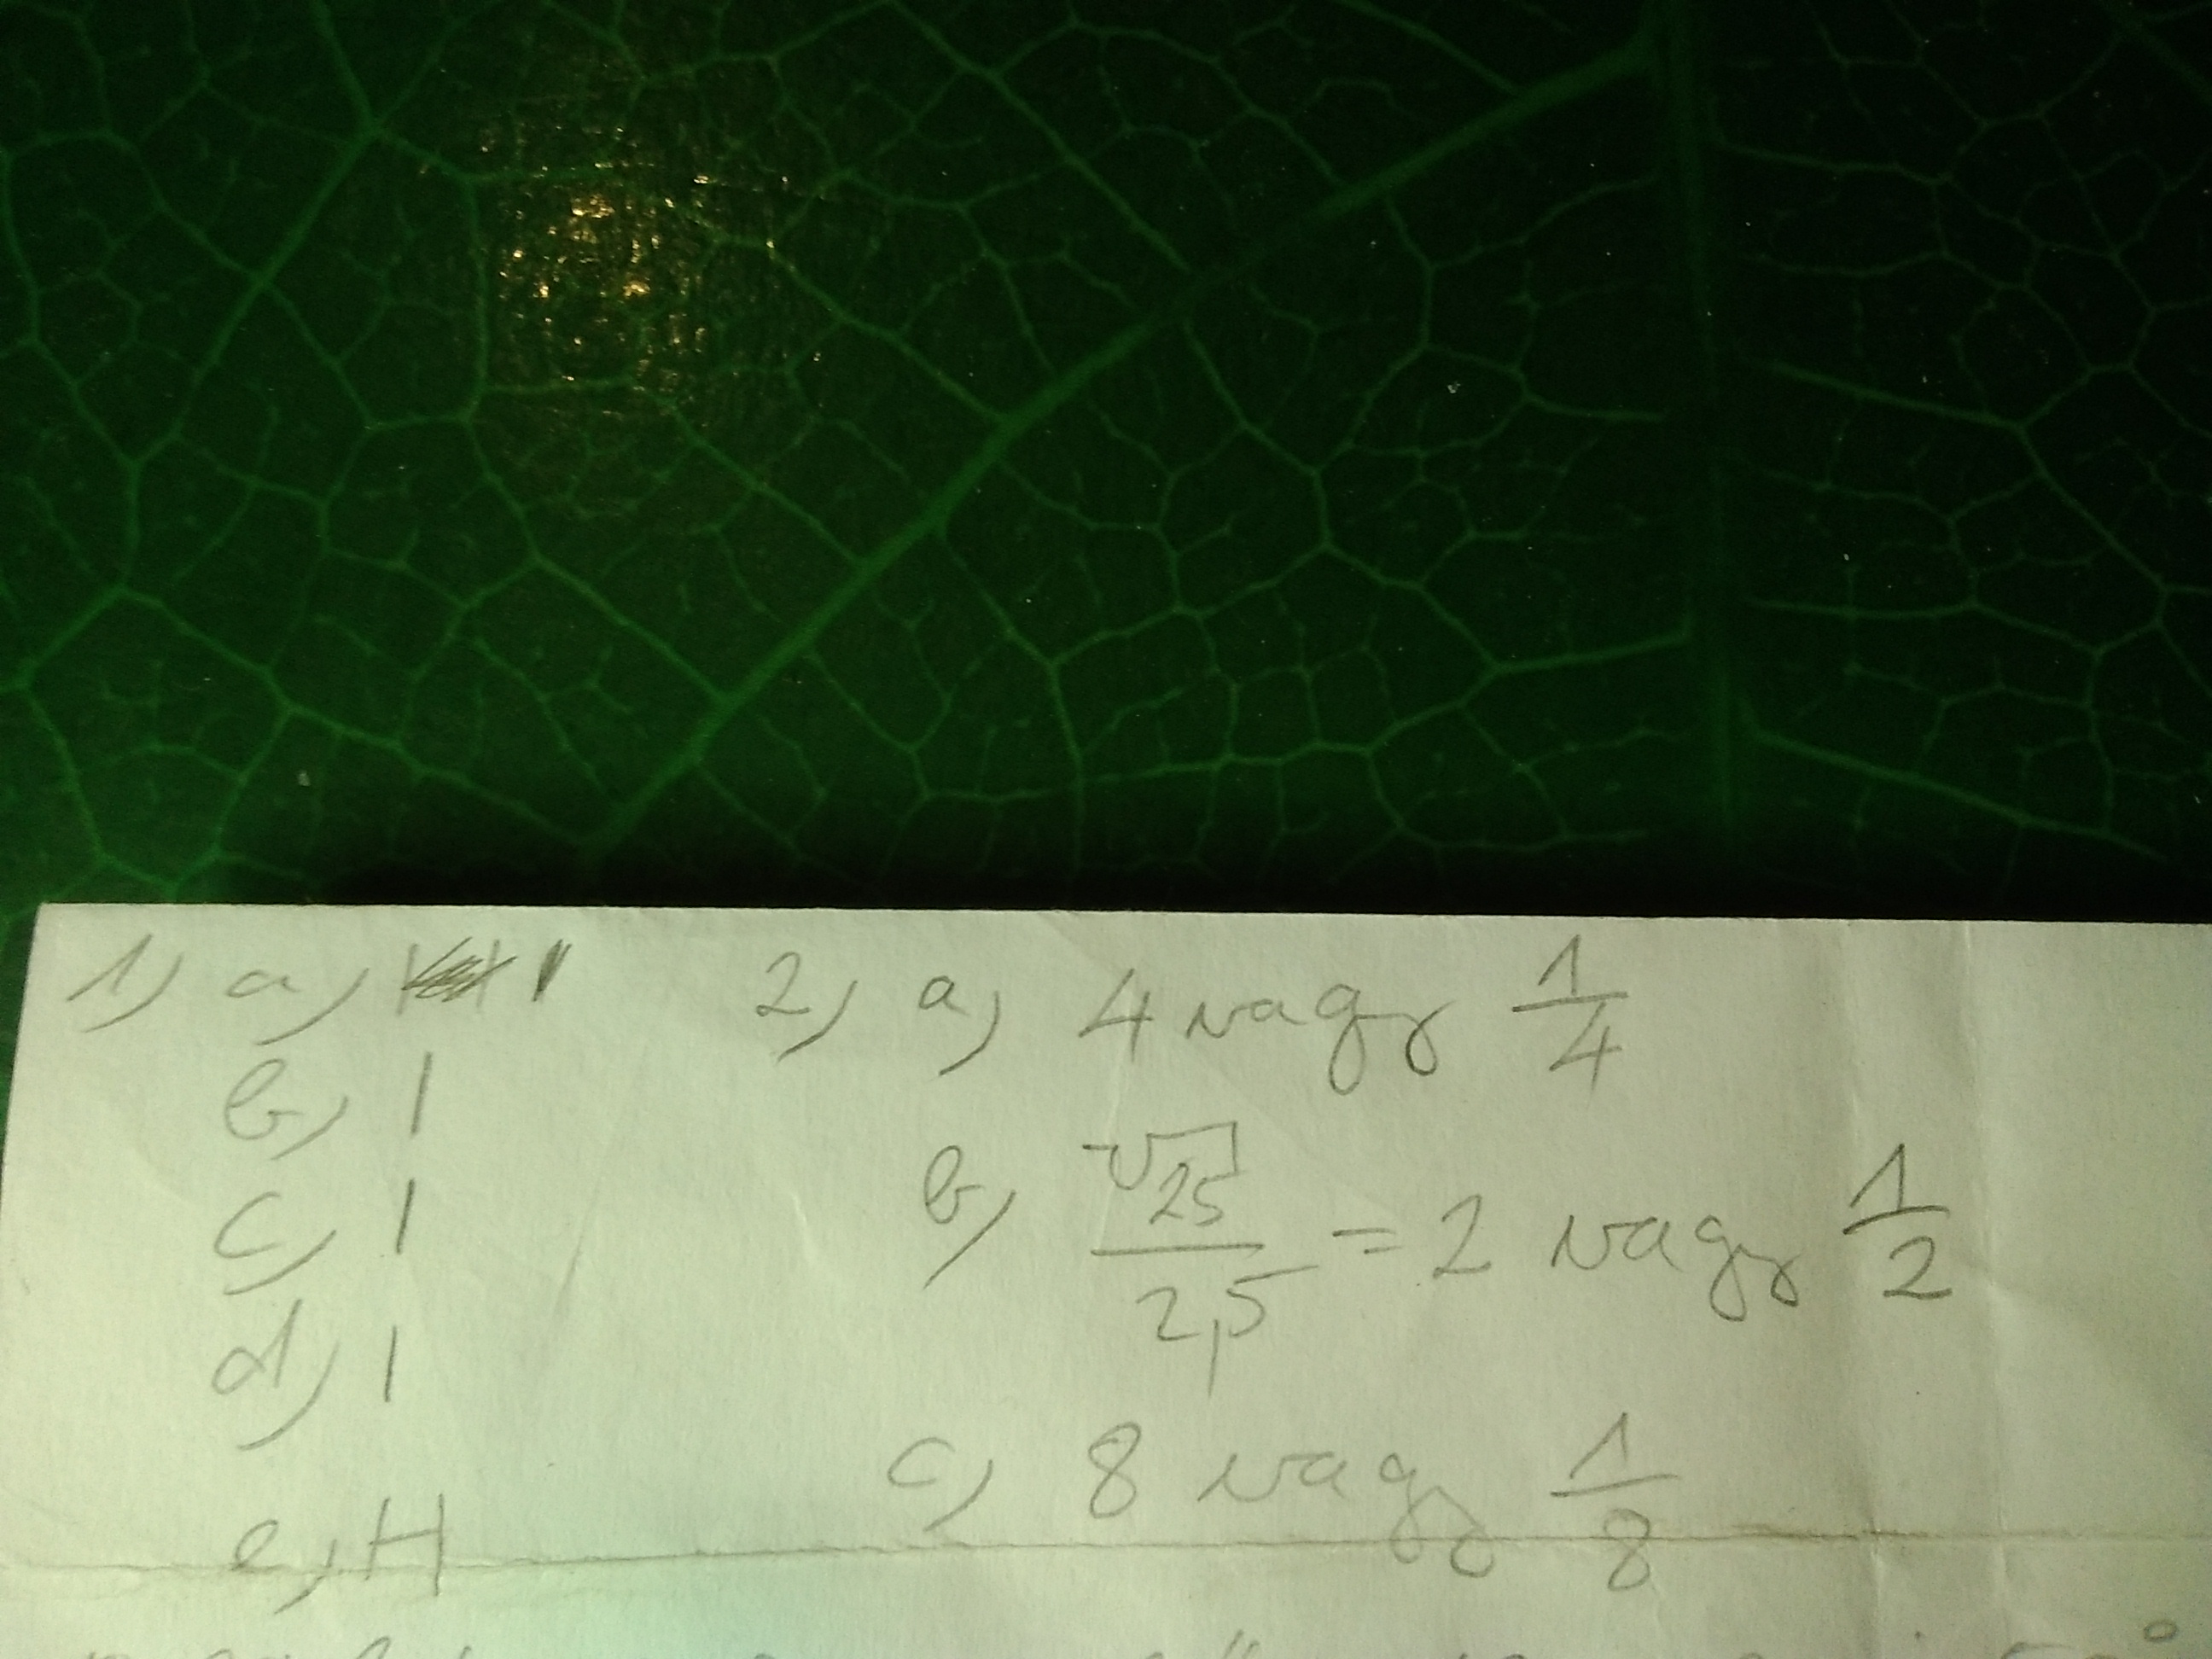 1) a) I
b) I
c) I
d) I
e) H
2) a) 4 vagy 1/4
b) √25/2,5 = 2 vagy 1/2
c) 8 vagy 1/8